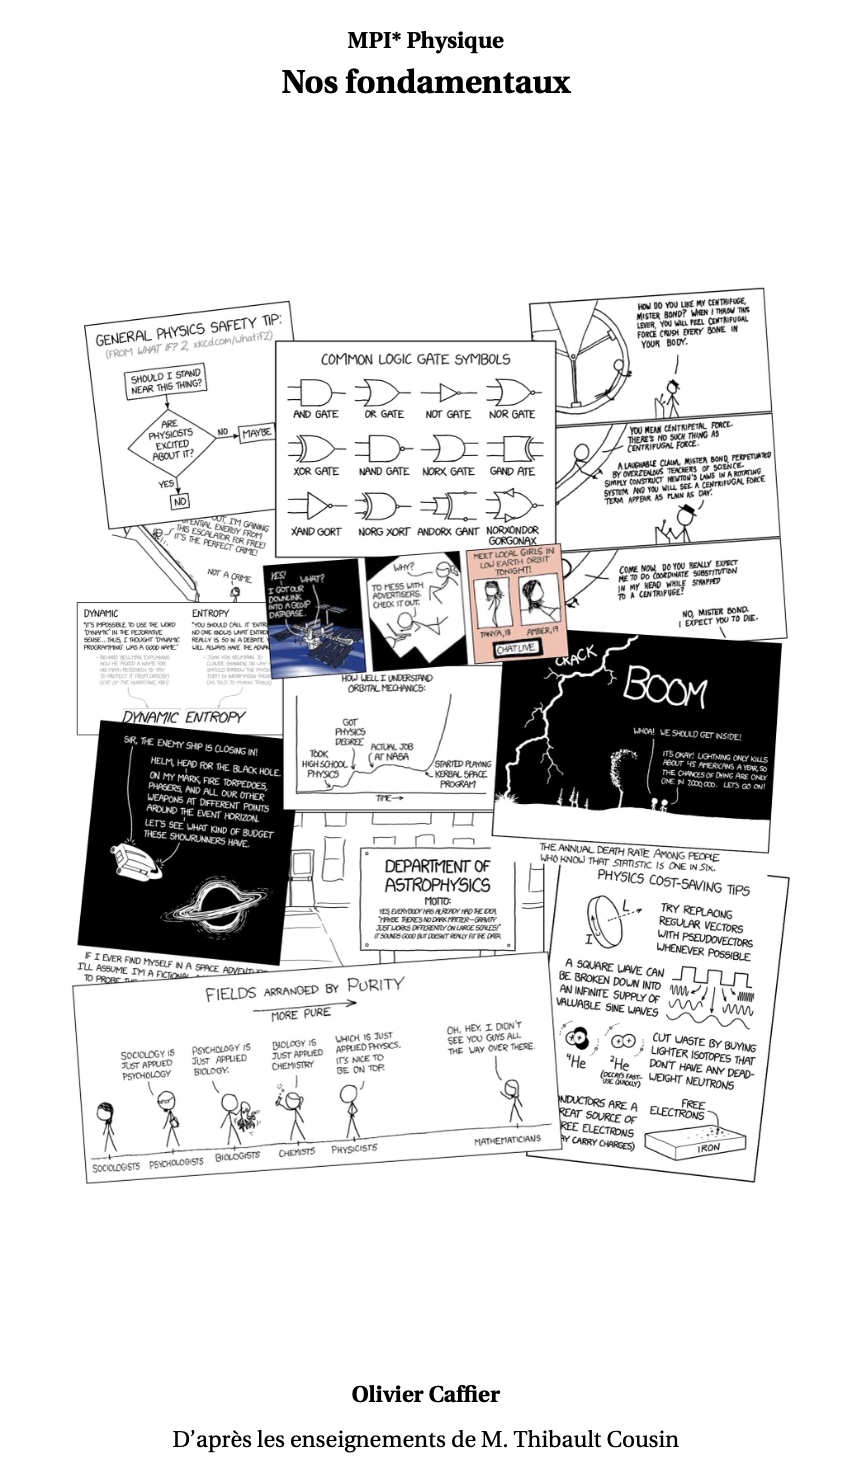 MPI* Physique
Nos fondamentaux
GENERAL PHYSICS SAFETY TIP:
(FROM WHAT IF? 2, xkcd.com/whatif2)
SHOULD I STAND
NEAR THIS THING?
ARE
PHYSICISTS
EXCITED
ABOUT IT?
NO
MAYBE
YES
NO
COMMON LOGIC GATE SYMBOLS
AND GATE
OR GATE
NOT GATE
NOR GATE
XOR GATE
NAND GATE
NORX GATE
GAND ATE
XAND GORT
NORG XORT
ANDORX GANT
NORXONDOR
GORGONAX
HOW DO YOU LIKE MY CENTRIFUGE,
MISTER BOND? WHEN I THROW THIS
LEVER, YOU WILL FEEL CENTRIFUGAL
FORCE CRUSH EVERY BONE IN
YOUR BODY.
YOU MEAN CENTRIPETAL FORCE.
THERE'S NO SUCH THING AS
CENTRIFUGAL FORCE.
A LAUGHABLE CLAIM, MISTER BOND, PERPETUATED
BY OVERZEALOUS TEACHERS OF SCIENCE.
SIMPLY CONSTRUCT NEWTON'S LAWS IN A ROTATING
SYSTEM AND YOU WILL SEE A CENTRIFUGAL FORCE
TERM APPEAR AS PLAIN AS DAY.
COME NOW, DO YOU REALLY EXPECT
ME TO DO COORDINATE SUBSTITUTION
IN MY HEAD WHILE STRAPPED
TO A CENTRIFUGE?
NO, MISTER BOND.
I EXPECT YOU TO DIE.
OUT, I'M GAINING
POTENTIAL ENERGY FROM
THIS ESCALATOR FOR FREE!
IT'S THE PERFECT CRIME!
NOT A CRIME.
DYNAMIC
"IT'S IMPOSSIBLE TO USE THE WORD
'DYNAMIC' IN THE PEJORATIVE
SENSE...THUS, I THOUGHT 'DYNAMIC
PROGRAMMING' WAS A GOOD NAME."
ENTROPY
DYNAMIC ENTROPY
YES!
WHAT?
I GOT OUR
DOWNLINK
INTO A GEOIP
DATABASE.
WHY?
TO MESS WITH
ADVERTISERS.
CHECK IT OUT.
MEET LOCAL GIRLS IN
LOW EARTH ORBIT
TONIGHT!
TANYA, 18
AMBER, 19
CHAT LIVE
HOW WELL I UNDERSTAND
ORBITAL MECHANICS:
GOT
PHYSICS
DEGREE
TOOK
HIGH SCHOOL
PHYSICS
ACTUAL JOB
AT NASA
STARTED PLAYING
KERBAL SPACE
PROGRAM
TIME
CRACK
BOOM
WHOA! WE SHOULD GET INSIDE!
IT'S OKAY! LIGHTNING ONLY KILLS
ABOUT 45 AMERICANS A YEAR, SO
THE CHANCES OF DYING ARE ONLY
ONE IN 7,000,000. LET'S GO ON!
THE ANNUAL DEATH RATE AMONG PEOPLE
WHO KNOW THAT STATISTIC IS ONE IN SIX.
SIR, THE ENEMY SHIP IS CLOSING IN!
HELM, HEAD FOR THE BLACK HOLE.
ON MY MARK, FIRE TORPEDOES,
PHASERS, AND ALL OUR OTHER
WEAPONS AT DIFFERENT POINTS
AROUND THE EVENT HORIZON.
LET'S SEE WHAT KIND OF BUDGET
THESE SHOWRUNNERS HAVE.
IF I EVER FIND MYSELF IN A SPACE
I'LL ASSUME I'M A
DEPARTMENT OF
ASTROPHYSICS
MOTTO:
YES, EVERYBODY HAS ALREADY HAD THE IDEA,
"MAYBE THERE'S NO DARK MATTER—GRAVITY
JUST WORKS DIFFERENTLY ON LARGE SCALES!"
IT SOUNDS GOOD BUT DOESN'T REALLY FIT THE DATA.
PHYSICS COST-SAVING TIPS
L
I
TRY REPLACING
REGULAR VECTORS
WITH PSEUDOVECTORS
WHENEVER POSSIBLE
A SQUARE WAVE CAN
BE BROKEN DOWN INTO
AN INFINITE SUPPLY OF
VALUABLE SINE WAVES
⁴He
²He
(DECAYS FAST-
USE QUICKLY)
CUT WASTE BY BUYING
LIGHTER ISOTOPES THAT
DON'T HAVE ANY DEAD-
WEIGHT NEUTRONS
NDUCTORS ARE A
REAT SOURCE OF
REE ELECTRONS
AY CARRY CHARGES)
FREE
ELECTRONS
IRON
FIELDS ARRANGED BY PURITY
MORE PURE
SOCIOLOGY IS
JUST APPLIED
PSYCHOLOGY
PSYCHOLOGY IS
JUST APPLIED
BIOLOGY.
BIOLOGY IS
JUST APPLIED
CHEMISTRY
WHICH IS JUST
APPLIED PHYSICS.
IT'S NICE TO
BE ON TOP.
OH, HEY, I DIDN'T
SEE YOU GUYS ALL
THE WAY OVER THERE.
SOCIOLOGISTS
PSYCHOLOGISTS
BIOLOGISTS
CHEMISTS
PHYSICISTS
MATHEMATICIANS
Olivier Caffier
D'après les enseignements de M. Thibault Cousin